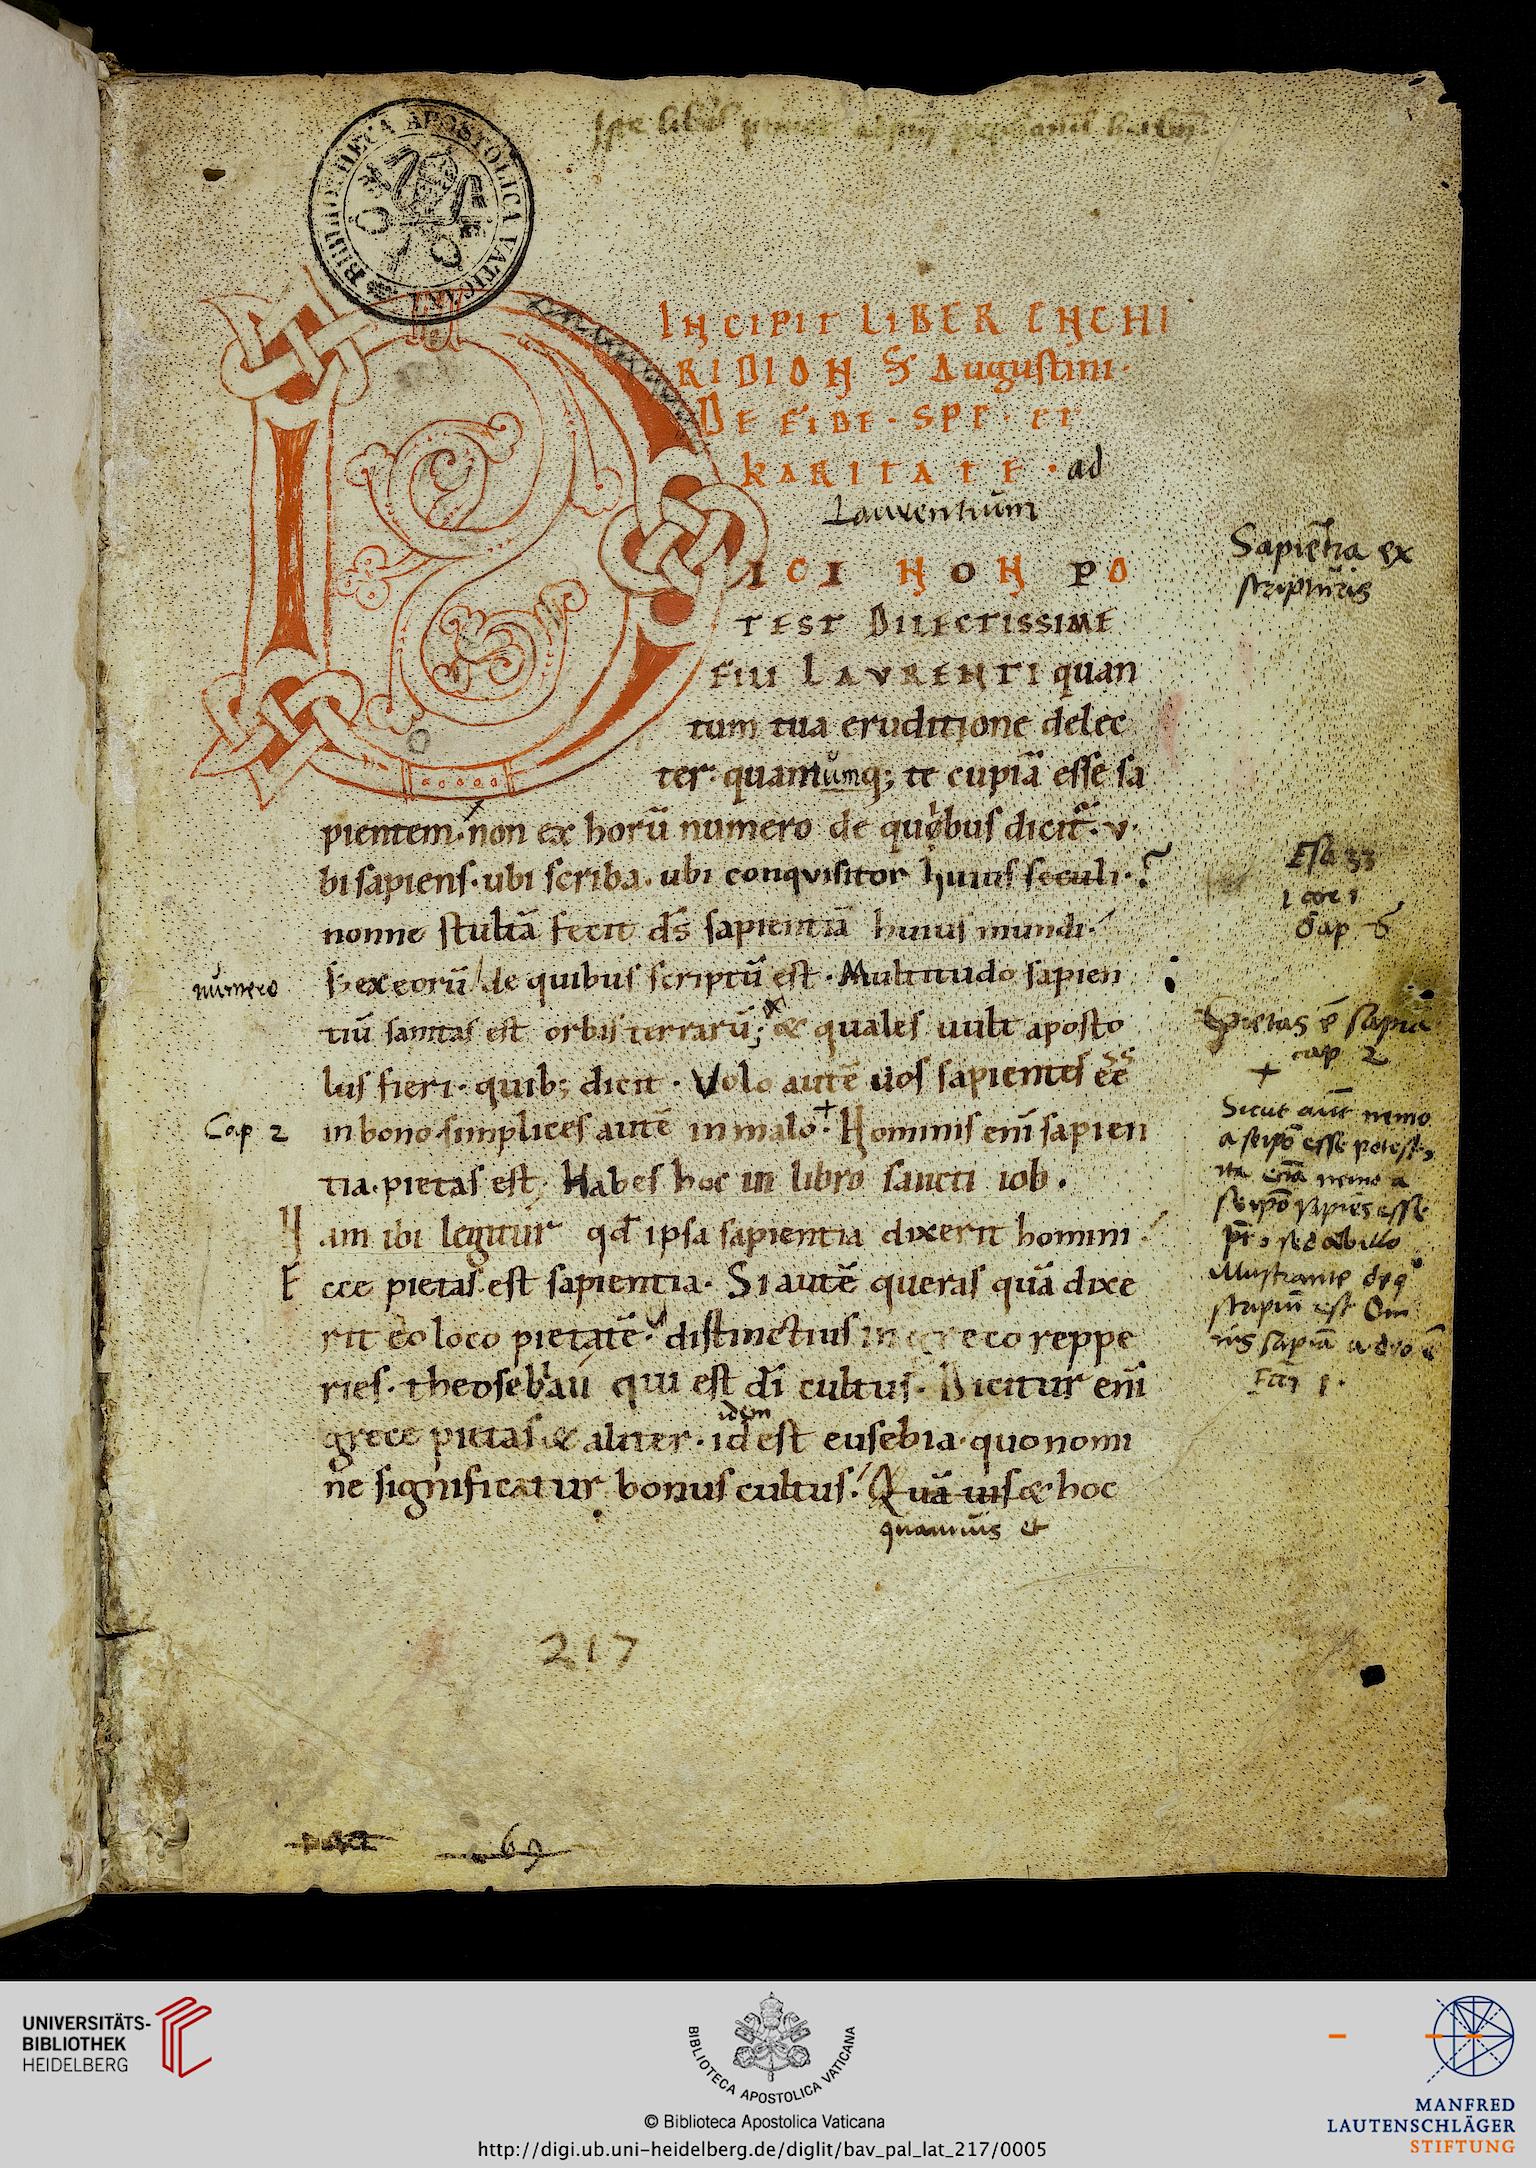 BIBLIOTHECA APOSTOLICA VATICANA
INCIPIT LIBER ENCHI
RIDION S Augustini·
DE FIDE · SPE · ET
KARITATE · ad
Laurentium
DICI NON PO
TEST DILECTISSIME
FILI LAVRENTI quan
tum tua eruditione delec
ter· quantumq; te cupiā esse sa
pientem· non ex horū numero de quibus dicit᷑· v
bi sapiens· ubi scriba· ubi conquisitor huius seculi·?
nonne stultā fecit d̄s sapientiā huius mundi·
S; ex eorū de quibus scriptū est · Multitudo sapien
tiū sanitas est orbis terrarū; & quales uult aposto
lus fieri· quib; dicit · Volo autē uos sapientes ēē
in bono· simplices autē in malo· Hominis enī sapien
tia· pietas est; Habes hoc in libro sancti iob .
Nam ibi legitur qd̄ ipsa sapientia dixerit homini
Ecce pietas est sapientia· Si autē queras quā dixe
rit eo loco pietatē· distinctius in greco reppe
ries· theosebian qui est dī cultus· Dicitur enī
grece pietas & aliter· id est eusebia· quo nomi
ne significatur bonus cultus· Quā uis & hoc
quamuis et
numero
Cap 2
idem
Sapientia ex
scripturis
Esa 33
1 cor 1
Sap 6
Pietas ē sapiā
cap 2
Sicut aut nemo
a seipō esse potest,
ita etiā nemo a
seipō sapiēs esse
pt, sed ab illo
illustrante de q°
scriptū est Om
nis sapiā a deo ē
Eccī 1.
217
69
UNIVERSITÄTS-
BIBLIOTHEK
HEIDELBERG
BIBLIOTECA APOSTOLICA VATICANA
© Biblioteca Apostolica Vaticana
http://digi.ub.uni-heidelberg.de/diglit/bav_pal_lat_217/0005
MANFRED
LAUTENSCHLÄGER
STIFTUNG